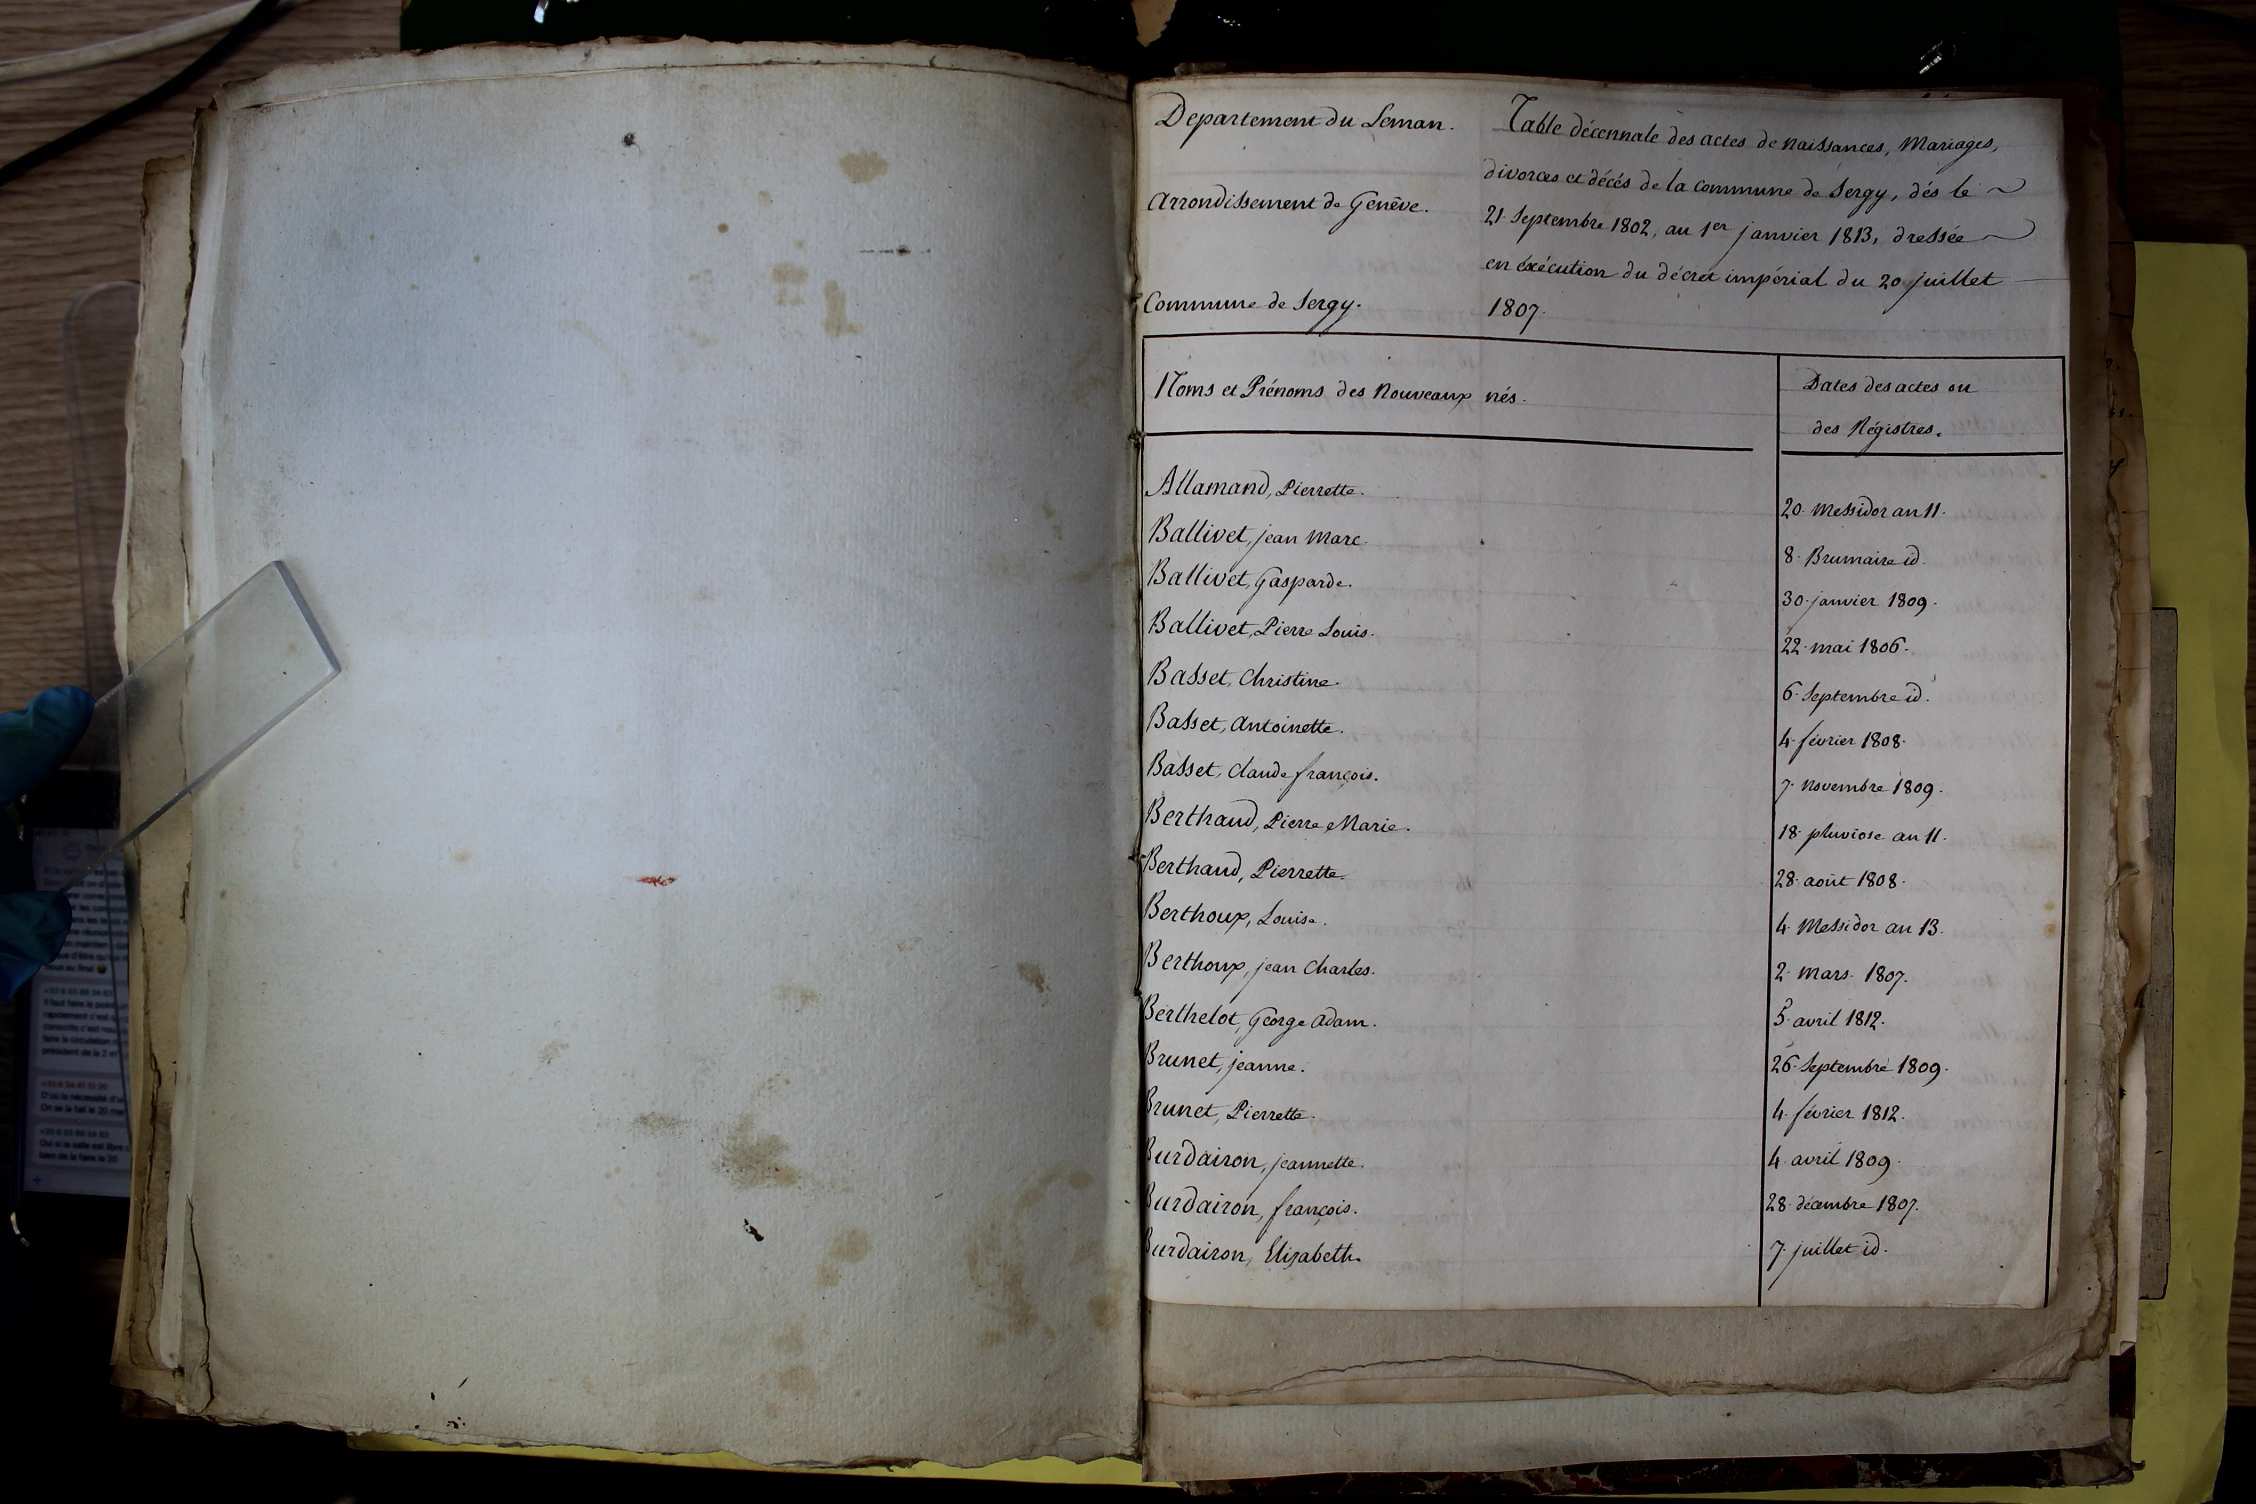 Departement du Leman.
Arrondissement de Genêve.
Commune de Sergy.
Table décennale des actes de Naissances, Mariages,
divorces et décés de la commune de Sergy, dés le
21 Septembre 1802, au 1er janvier 1813, dressée
en éxécution du décret impérial du 20 juillet
1807.
Noms et Prénoms des Nouveaux nés.
Dates des actes ou
des Régistres.
Allamand, Pierrette. 20 Messidor an 11.
Ballivet, jean Marc. 8 Brumaire id.
Ballivet, Gasparde. 30 janvier 1809.
Ballivet, Pierre Louis. 22 mai 1806.
Basset, Christine. 6 Septembre id.
Basset, Antoinette. 4 février 1808.
Basset, Claude françois. 7 Novembre 1809.
Berthaud, Pierre Marie. 18 pluviose an 11.
Berthaud, Pierrette. 28 août 1808.
Berthoux, Louise. 4 Messidor an 13.
Berthoux, jean Charles. 2 mars 1807.
Berthelot, George Adam. 5 avril 1812.
Brunet, jeanne. 26 Septembre 1809.
Brunet, Pierrette. 4 février 1812.
Burdairon, jeannette. 4 avril 1809.
Burdairon, françois. 28 décembre 1807.
Burdairon, Elizabeth. 7 juillet id.